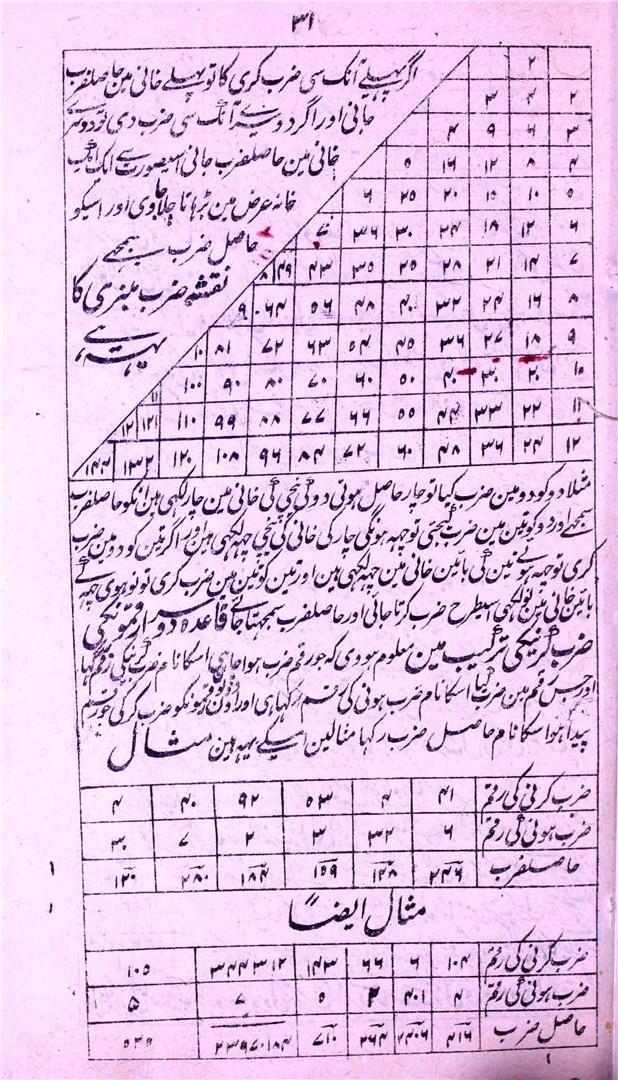 ۳۱
اگر پہلے آنک سی ضرب کری گا تو پہلے خانی مین حاصلضرب
جانی اور اگر دوسرے آنک سی ضرب دی تو دوسرے
خانی مین حاصلضرب جانی اسیصورت سے ایک ایک
خانہ عرض مین بڑہاتا چلا جاوی اور اسیکو
حاصل ضرب سمجہے
نقشہ ضرب مبنری کا
یہہ ہے
۲
۲ ۴ ۳
۳ ۶ ۹ ۴
۴ ۸ ۱۲ ۱۶ ۵
۵ ۱۰ ۱۵ ۲۰ ۲۵ ۶
۶ ۱۲ ۱۸ ۲۴ ۳۰ ۳۶ ۷
۷ ۱۴ ۲۱ ۲۸ ۳۵ ۴۳ ۴۹ ۸
۸ ۱۶ ۲۴ ۳۲ ۴۰ ۴۸ ۵۶ ۶۴ ۹
۹ ۱۸ ۲۷ ۳۶ ۴۵ ۵۴ ۶۳ ۷۲ ۸۱ ۱۰
۱۰ ۲۰ ۳۰ ۴۰ ۵۰ ۶۰ ۷۰ ۸۰ ۹۰ ۱۰۰ ۱۱
۱۱ ۲۲ ۳۳ ۴۴ ۵۵ ۶۶ ۷۷ ۸۸ ۹۹ ۱۱۰ ۱۲۱ ۱۲
۱۲ ۲۴ ۳۶ ۴۸ ۶۰ ۷۲ ۸۴ ۹۶ ۱۰۸ ۱۲۰ ۱۳۲ ۱۴۴
مثلا دو کو دو مین ضرب کیا تو چار حاصل ہوتی دو کی نیچی کی خانی مین چار لکہی ہین انکو حاصلضرب
سمجہے اور دو کو تین مین ضرب کیجئی تو چہہ ہونگی چار کی خانی کی نیچی چہہ لکہی ہین اور اگر تین کو دو مین ضرب
کری تو چہہ ہونے تین کی بائین خانی مین چہہ لکہی ہین اور تین کو تین مین ضرب کری تو نو ہوی چہہ کے
بائین خانی مین نو لکہی اسیطرح ضرب کرتا جائی اور حاصلضرب سمجہتا جائے قاعدہ دوسرا رقمونکی
ضرب کرنیکی ترکیب مین معلوم ہووی کہ جو رقم ضرب ہوا چاہی اسکا نام ضرب کرنیکی رقم رکہا
اور جس رقم مین ضرب کیا اسکا نام ضرب ہونی کی رقم رکہا ہی اور ان دونو رقمونکو ضرب کر کی جو رقم
پیدا ہوا سکا نام حاصل ضرب رکہا مثالین اسکے یہہ ہین مثال
ضرب کرنی کی رقم ۴۱ ۴ ۵۳ ۹۲ ۴۰ ۴
ضرب ہونی کی رقم ۶ ۳۲ ۳ ۲ ۷ ۳۰
حاصلضرب ۲۴۶ ۱۲۸ ۱۵۹ ۱۸۴ ۲۸۰ ۱۲۰
مثال ایضاً
ضرب کرنی کی رقم ۱۰۴ ۶ ۶۶ ۱۴۲ ۱۰۵
ضرب ہونی کی رقم ۴ ۴۰۱ ۵ ۷ ۵
حاصل ضرب ۴۱۶ ۲۴۰۶ ۲۶۴ ۷۱۰ ۵۲۵